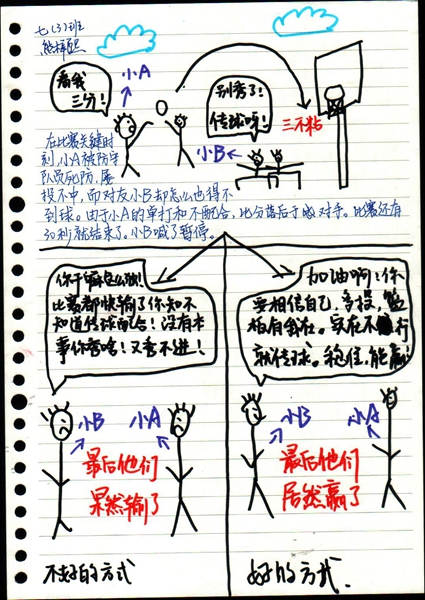 七(3)班
看我
三分！
小A
别秀了！
传球呀！
三不粘
小B
在比赛关键时
刻，小A被防守
队员死防，屡
投不中，而对友小B却怎么也得不
到球。由于小A的单打和不配合，比分落后于对手。比赛还有
30秒就结束了。小B喊了暂停。
比赛都快输了你知不
知道传球配合！没有本
事你秀啥！又秀不进！
加油啊！你
要相信自己，
怕有我在。实在不行
就传球。稳住，能赢！
小B
小A
最后他们
果然输了
小B
小A
最后他们
居然赢了
不好的方式
好的方式.